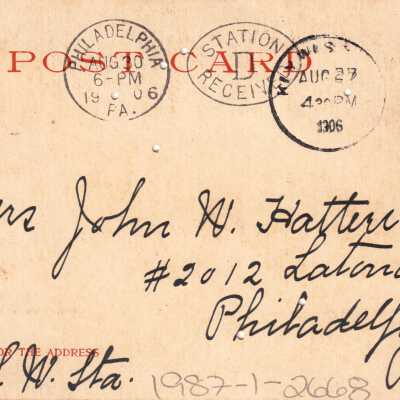 POST CARD
PHILADELPHIA
AUG 30
6-PM
1906
PA.
STATION
D
RECEIVED
AUG 27
4 30 PM
1906
John W. Hatter
#2012 Laton
Philadelp
FOR THE ADDRESS
W. Sta.
1987-1-2668